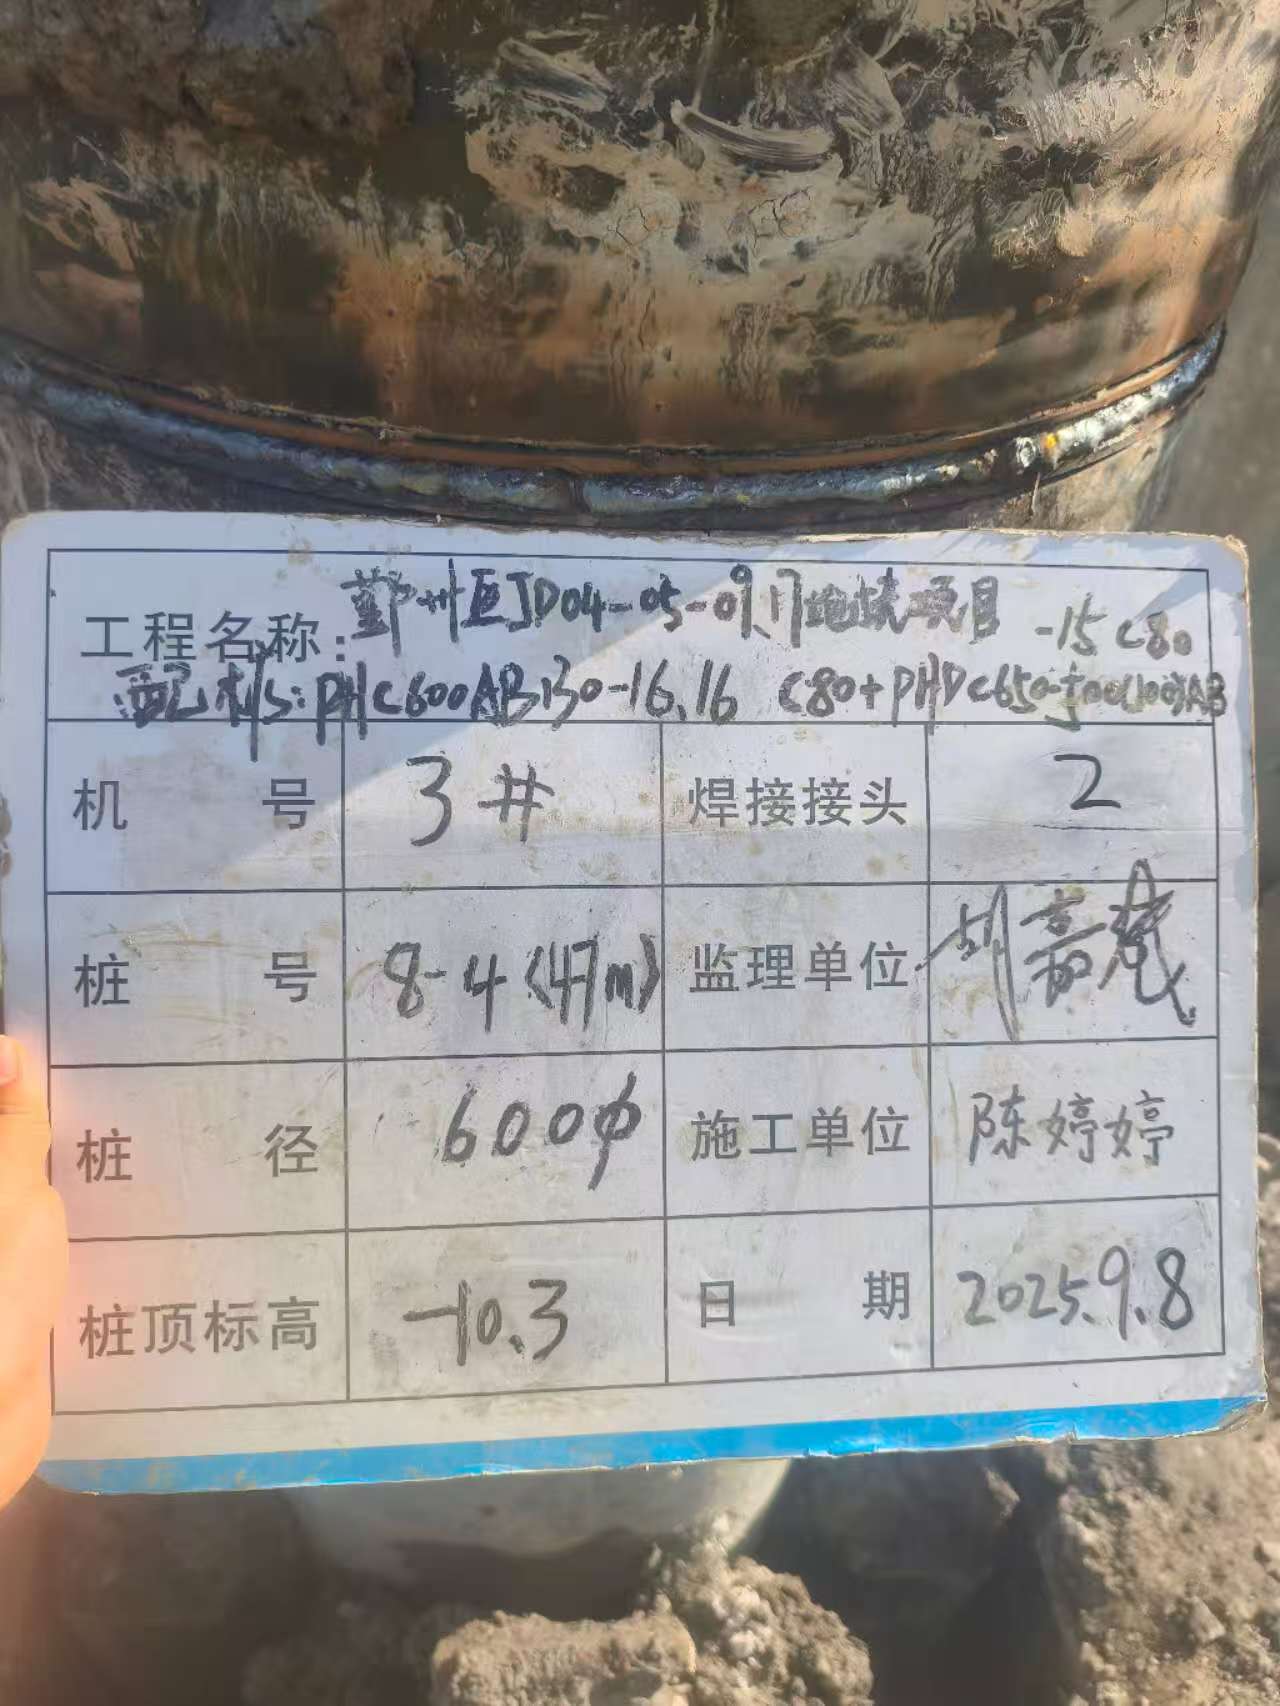 工程名称:鄞州区JD04-05-09.17地块项目 -15 C80
配桩:PHC600AB130-16,16 C80+PHDC650-500(100)AB
机号 3# 焊接接头 2
桩号 8-4(47m) 监理单位 胡嘉
桩径 600φ 施工单位 陈婷婷
桩顶标高 -10.3 日期 2025.9.8